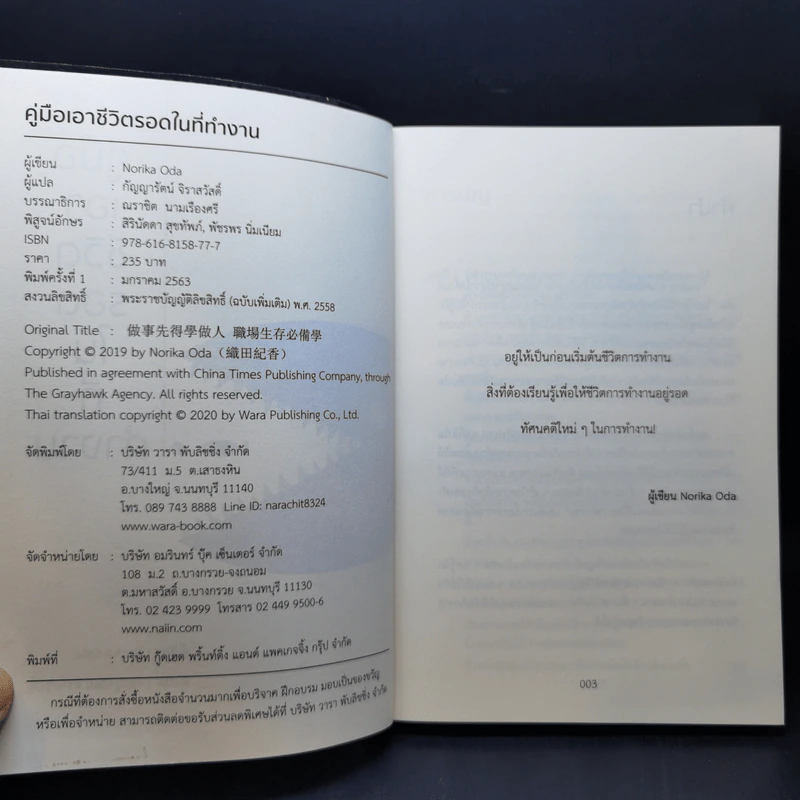 คู่มือเอาชีวิตรอดในที่ทำงาน
ผู้เขียน : Norika Oda
ผู้แปล : กัญญารัตน์ จิราสวัสดิ์
บรรณาธิการ : ณราชิต นามเรืองศรี
พิสูจน์อักษร : สิรินัดดา สุขทัพภ์, พัชรพร นิ่มเนียม
ISBN : 978-616-8158-77-7
ราคา : 235 บาท
พิมพ์ครั้งที่ 1 : มกราคม 2563
สงวนลิขสิทธิ์ : พระราชบัญญัติลิขสิทธิ์ (ฉบับเพิ่มเติม) พ.ศ. 2558
Original Title : 做事先得學做人 職場生存必備學
Copyright © 2019 by Norika Oda (織田紀香)
Published in agreement with China Times Publishing Company, through
The Grayhawk Agency. All rights reserved.
Thai translation copyright © 2020 by Wara Publishing Co., Ltd.
จัดพิมพ์โดย : บริษัท วารา พับลิชชิ่ง จำกัด
73/411 ม.5 ต.เสาธงหิน
อ.บางใหญ่ จ.นนทบุรี 11140
โทร. 089 743 8888 Line ID: narachit8324
www.wara-book.com
จัดจำหน่ายโดย : บริษัท อมรินทร์ บุ๊ค เซ็นเตอร์ จำกัด
108 ม.2 ถ.บางกรวย-จงถนอม
ต.มหาสวัสดิ์ อ.บางกรวย จ.นนทบุรี 11130
โทร. 02 423 9999 โทรสาร 02 449 9500-6
www.naiin.com
พิมพ์ที่ : บริษัท กู๊ดเฮด พริ้นท์ติ้ง แอนด์ แพคเกจจิ้ง กรุ๊ป จำกัด
กรณีที่ต้องการสั่งซื้อหนังสือจำนวนมากเพื่อบริจาค ฝึกอบรม มอบเป็นของขวัญ
หรือเพื่อจำหน่าย สามารถติดต่อขอรับส่วนลดพิเศษได้ที่ บริษัท วารา พับลิชชิ่ง จำกัด
อยู่ให้เป็นก่อนเริ่มต้นชีวิตการทำงาน
สิ่งที่ต้องเรียนรู้เพื่อให้ชีวิตการทำงานอยู่รอด
ทัศนคติใหม่ ๆ ในการทำงาน!
ผู้เขียน Norika Oda
003